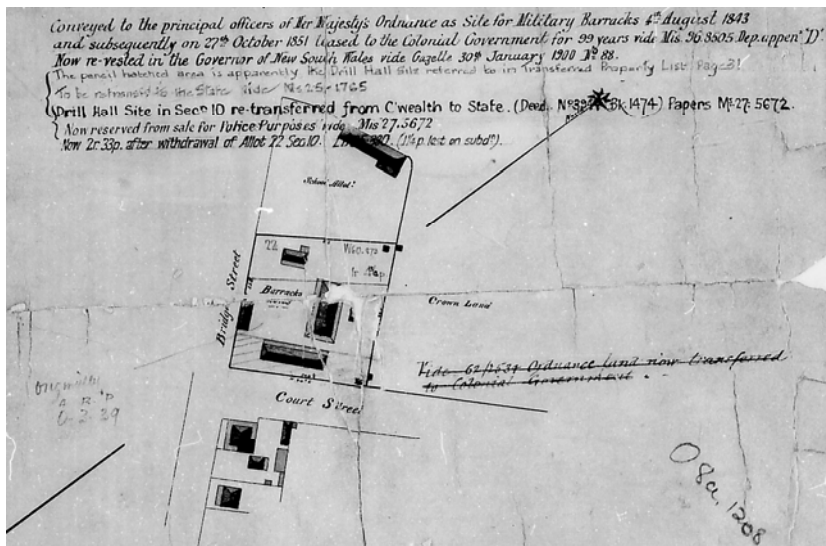 Conveyed to the principal officers of Her Majesty's Ordnance as Site for Military Barracks 4th August 1843
and subsequently on 27th October 1851 leased to the Colonial Government for 99 years vide Mis. 96.8505. Dep. appenx "D".
Now re-vested in the Governor of New South Wales vide Gazette 30th January 1900 No 88.
The pencil hatched area is apparently the Drill Hall Site referred to in Transferred Property List Page 31
To be retransfd to the State vide Ms 25-1765
Drill Hall Site in Secn 10 re-transferred from C'wealth to State. (Deed. Bk. 1474) Papers Ms. 27. 5672.
Now reserved from sale for Police Purposes vide Mis 27.5672
Now 2r. 33p. after withdrawal of Allot 22 Sec 10. (1¼p. lost on subdn).
School Allott
22
Bridge Street
Barracks
Crown Land
Vide Ordnance land now transferred
to Colonial Government.
Originally
A R P
0-3-29
Court Street
O8a.1208